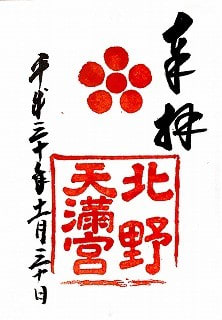 奉拝
北野
天満宮
平成三十年十一月三十日